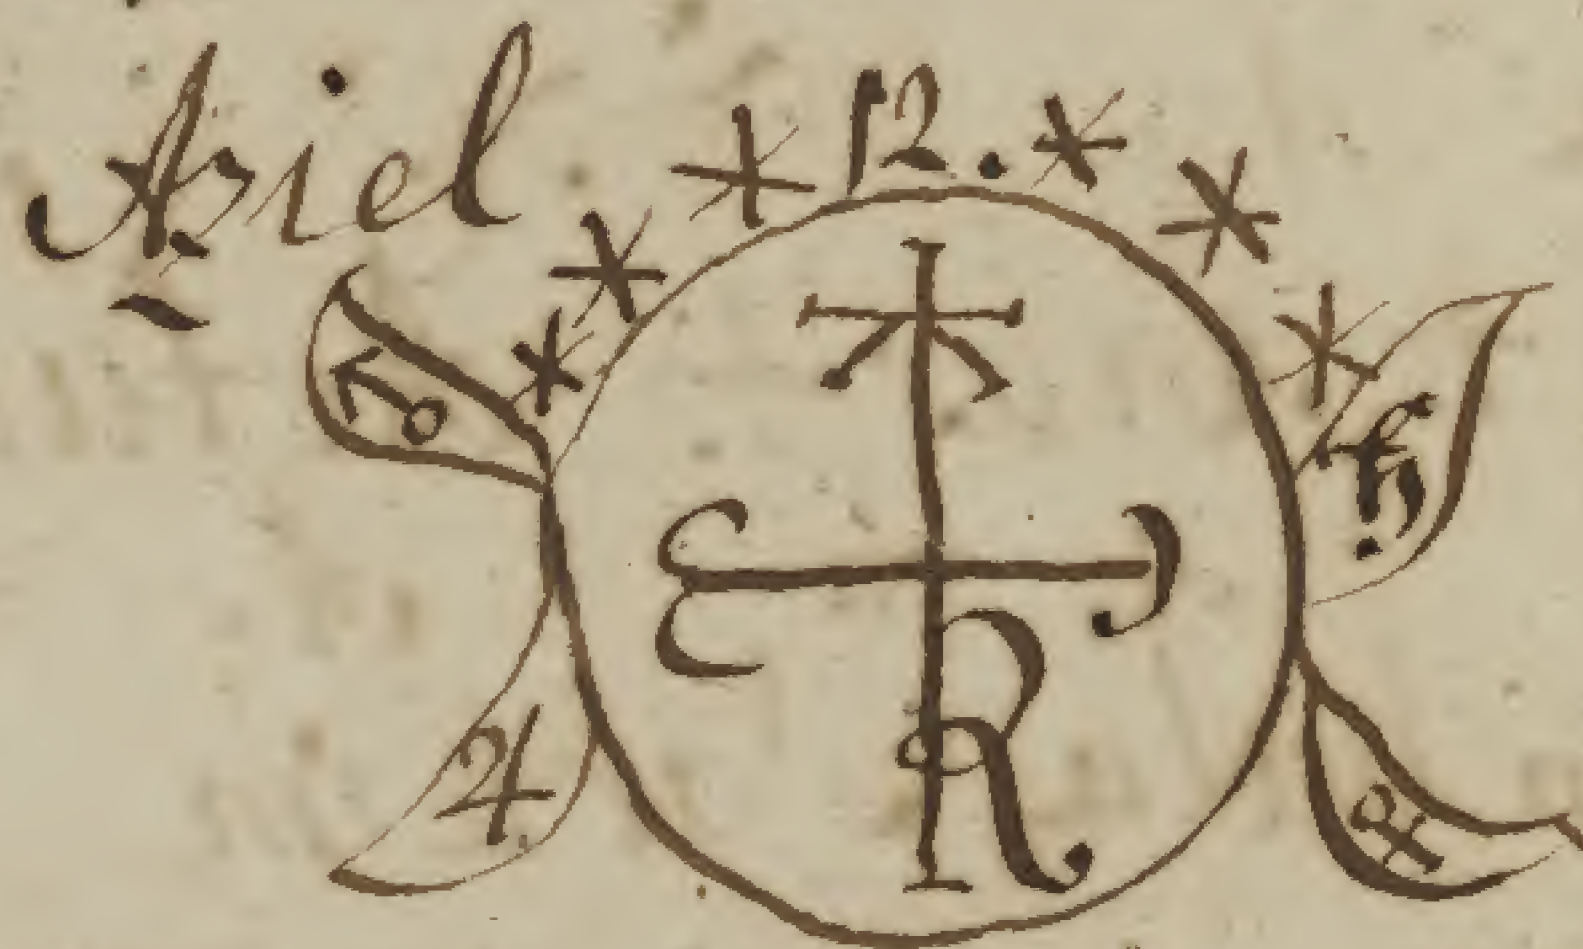 Aziel
12.
♂
♄
♃
♀
R